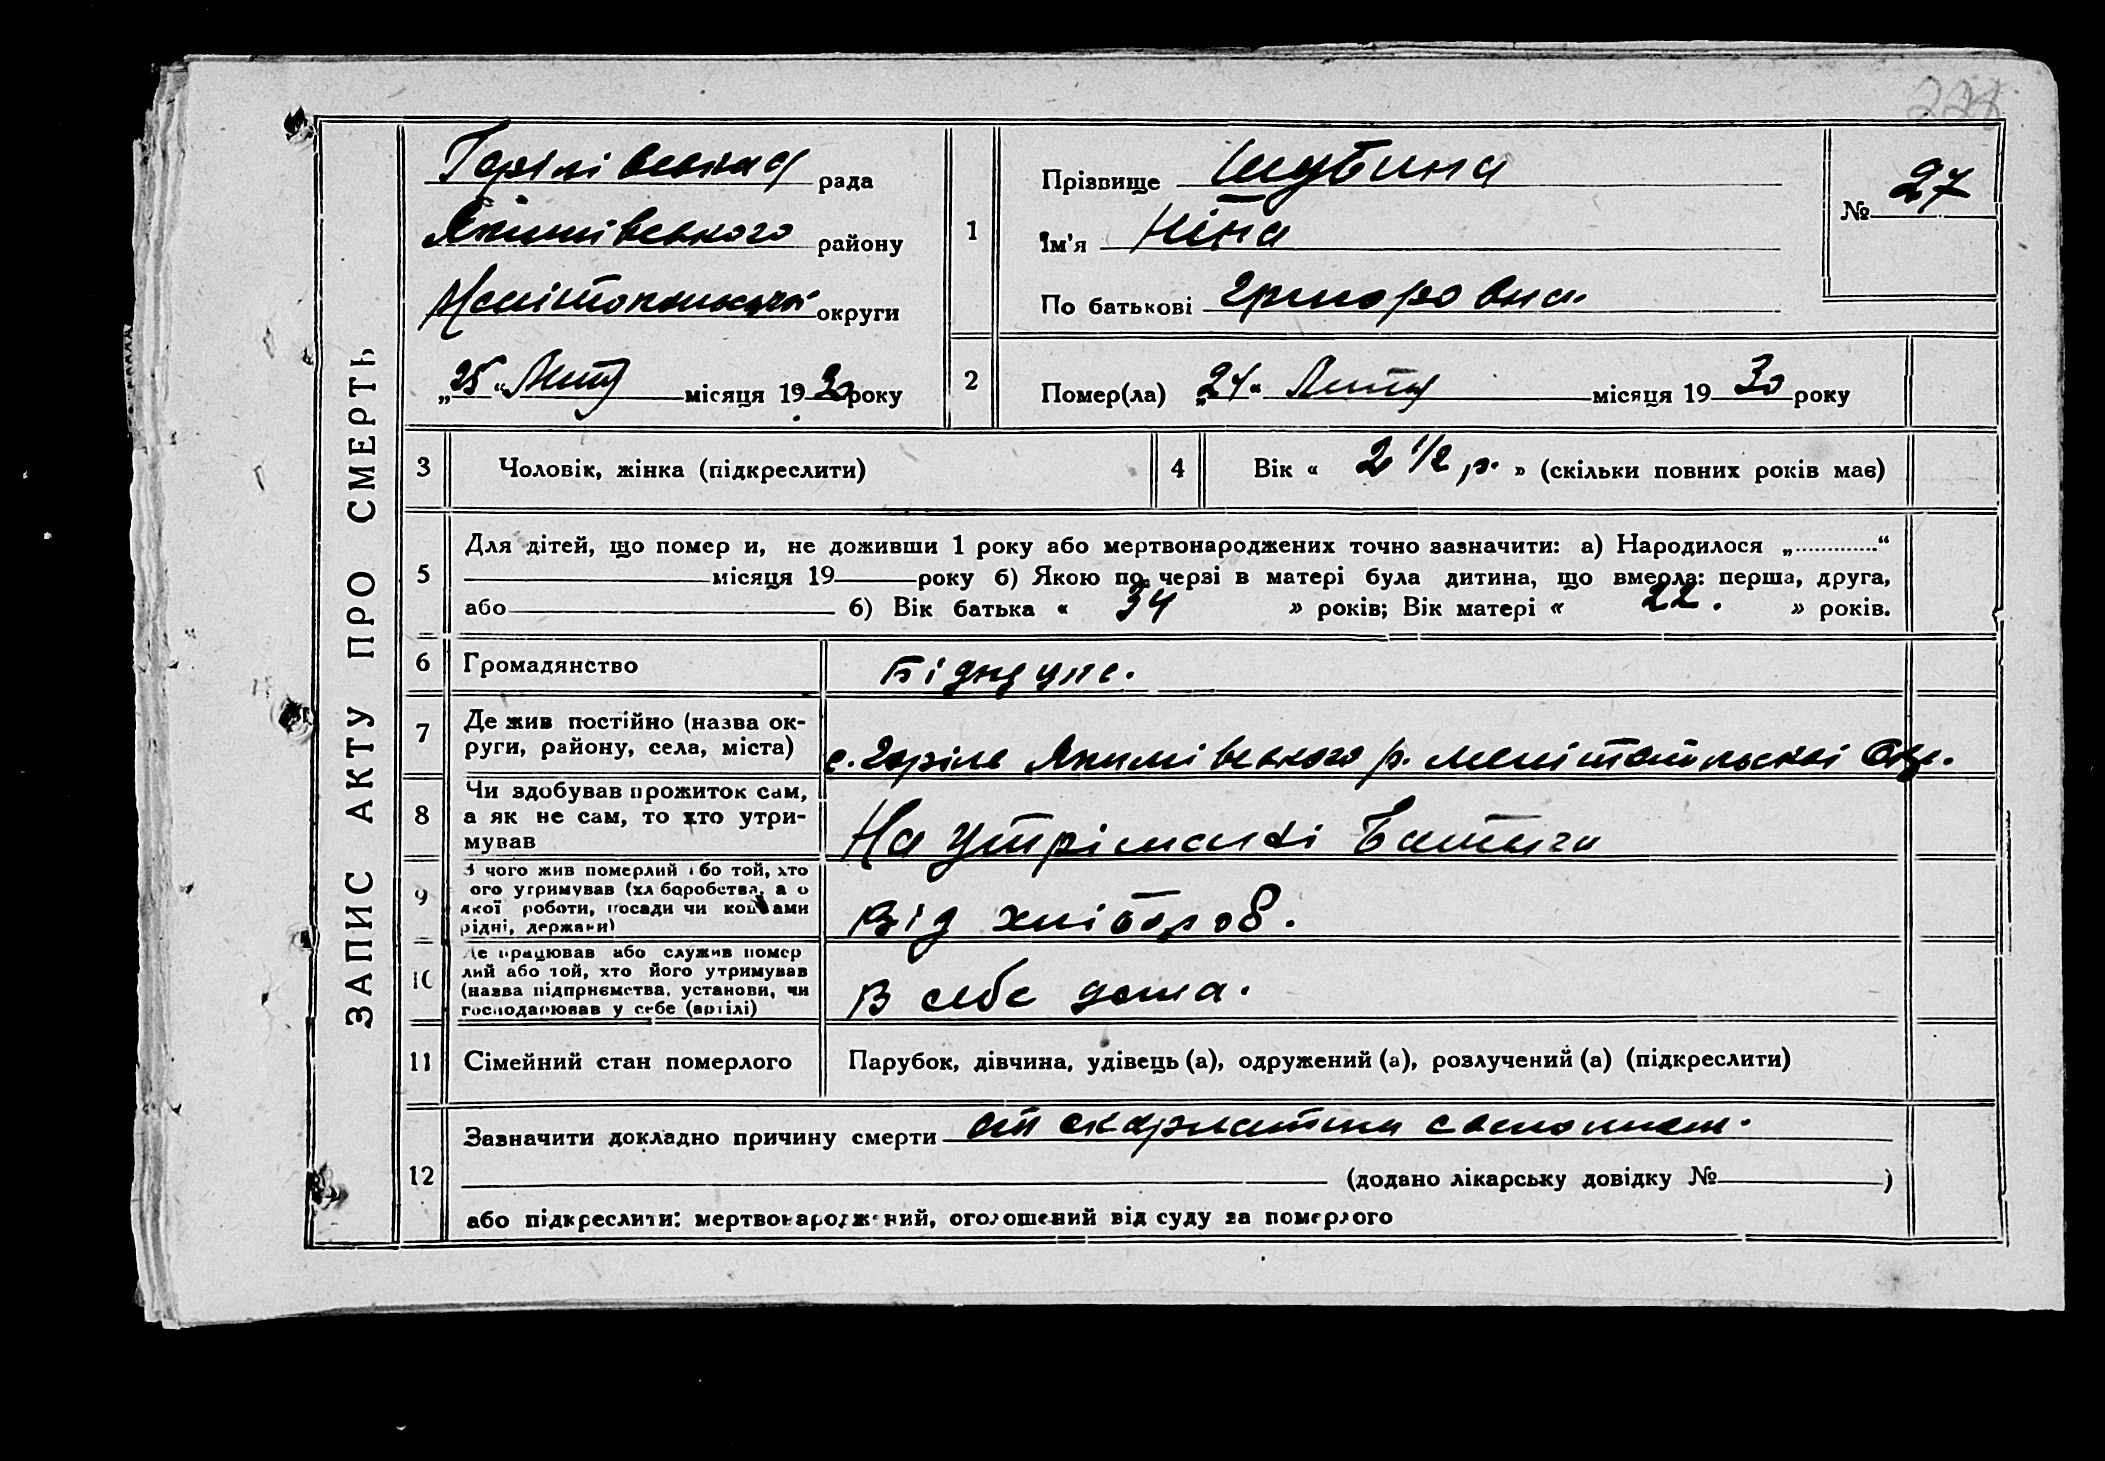 228
ЗАПИС АКТУ ПРО СМЕРТЬ
Горілівська рада
Якимівського району
Мелітопольської округи
„25“ Лют місяця 1930 року
1
Прізвище Шубина
Ім'я Ніна
По батькові Григоровна
№ 27
2
Помер(ла) „24“ Лютого місяця 1930 року
3 Чоловік, жінка (підкреслити)
4 Вік « 2 1/2 р. » (скільки повних років має)
5
Для дітей, що помер и, не доживши 1 року або мертвонароджених точно зазначити: а) Народилося „.............“
місяця 19 року б) Якою по черзі в матері була дитина, що вмерла: перша, друга,
або б) Вік батька « 34 » років; Вік матері « 22. » років.
6 Громадянство
7 Де жив постійно (назва ок-
руги, району, села, міста)
с. Горіле Якимівського р. Мелітопольскої Окр.
8 Чи здобував прожиток сам,
а як не сам, то хто утри-
мував
На утрімалкі Батька
9 З чого жив померлий або той, хто
ого утримував (хл боробства, а о
якої роботи, посади чи коштами
рідні, держави)
Від хлібороб.
10 Де працював або служив помер
лий або той, хто його утримував
(назва підприємства, установи, чи
господарював у себе (артілі)
В себе дома.
11 Сімейний стан померлого
Парубок, дівчина, удівець (а), одружений (а), розлучений (а) (підкреслити)
12
Зазначити докладно причину смерти от скарлатини
(додано лікарську довідку № )
або підкреслити: мертвонароджений, оголошений від суду за померлого